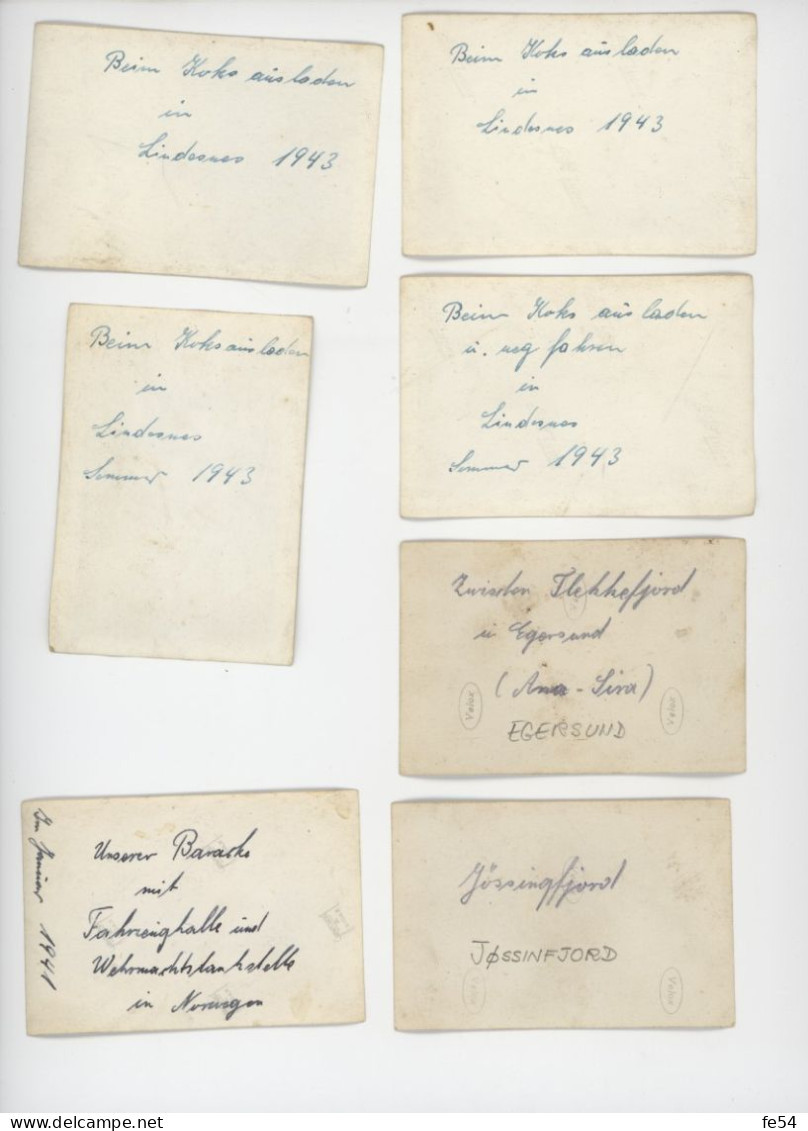 Beim Koks ausladen
in
Lindesnes 1943
Beim Koks ausladen
in
Lindesnes 1943
Beim Koks ausladen
in
Lindesnes
Sommer 1943
Beim Koks ausladen
u. weg fahren
in
Lindesnes
Sommer 1943
Zwischen Flekkefjord
u Egersund
(Ana-Sira)
EGERSUND
Velox
Velox
Im Januar 1941
Unserer Baracke
mit
Fahrzeughalle und
Wehrmachtstankstelle
in Norwegen
Jössingfjord
JØSSINFJORD
Velox
Velox
delcampe.net
fe54